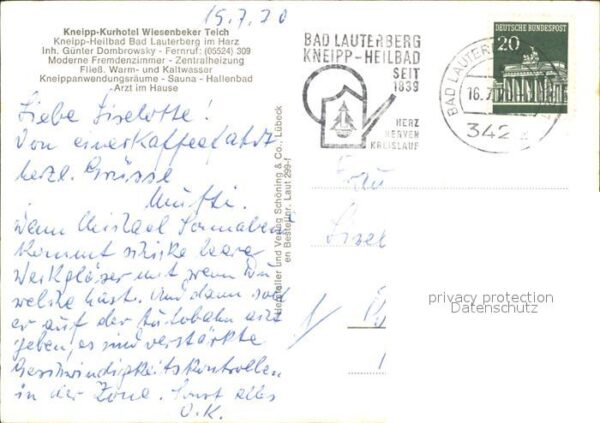 15.7.70
Kneipp-Kurhotel Wiesenbeker Teich
Kneipp-Heilbad Bad Lauterberg im Harz
Inh. Günter Dombrowsky - Fernruf: (05524) 309
Moderne Fremdenzimmer - Zentralheizung
Fließ. Warm- und Kaltwasser
Kneippanwendungsräume - Sauna - Hallenbad
Arzt im Hause
Liebe Liselotte!
Von einer Kaffeefahrt
herzl. Grüsse
Mutti.
Wenn Michael Sonnabend
kommt schicke leere
Weckgläser mit, wenn Du
welche hast. Und dann soll
er auf der Autobahn acht
geben, es sind verstärkte
Geschwindigkeitskontrollen
in der Zone. Sonst alles
O.K.
Hersteller und Verlag Schöning & Co., Lübeck
en Besteller. Laut 299-f
BAD LAUTERBERG
KNEIPP-HEILBAD
SEIT
1839
HERZ
NERVEN
KREISLAUF
DEUTSCHE BUNDESPOST
20
BAD LAUTER
16.7
342
Frau
Lisel
privacy protection
Datenschutz